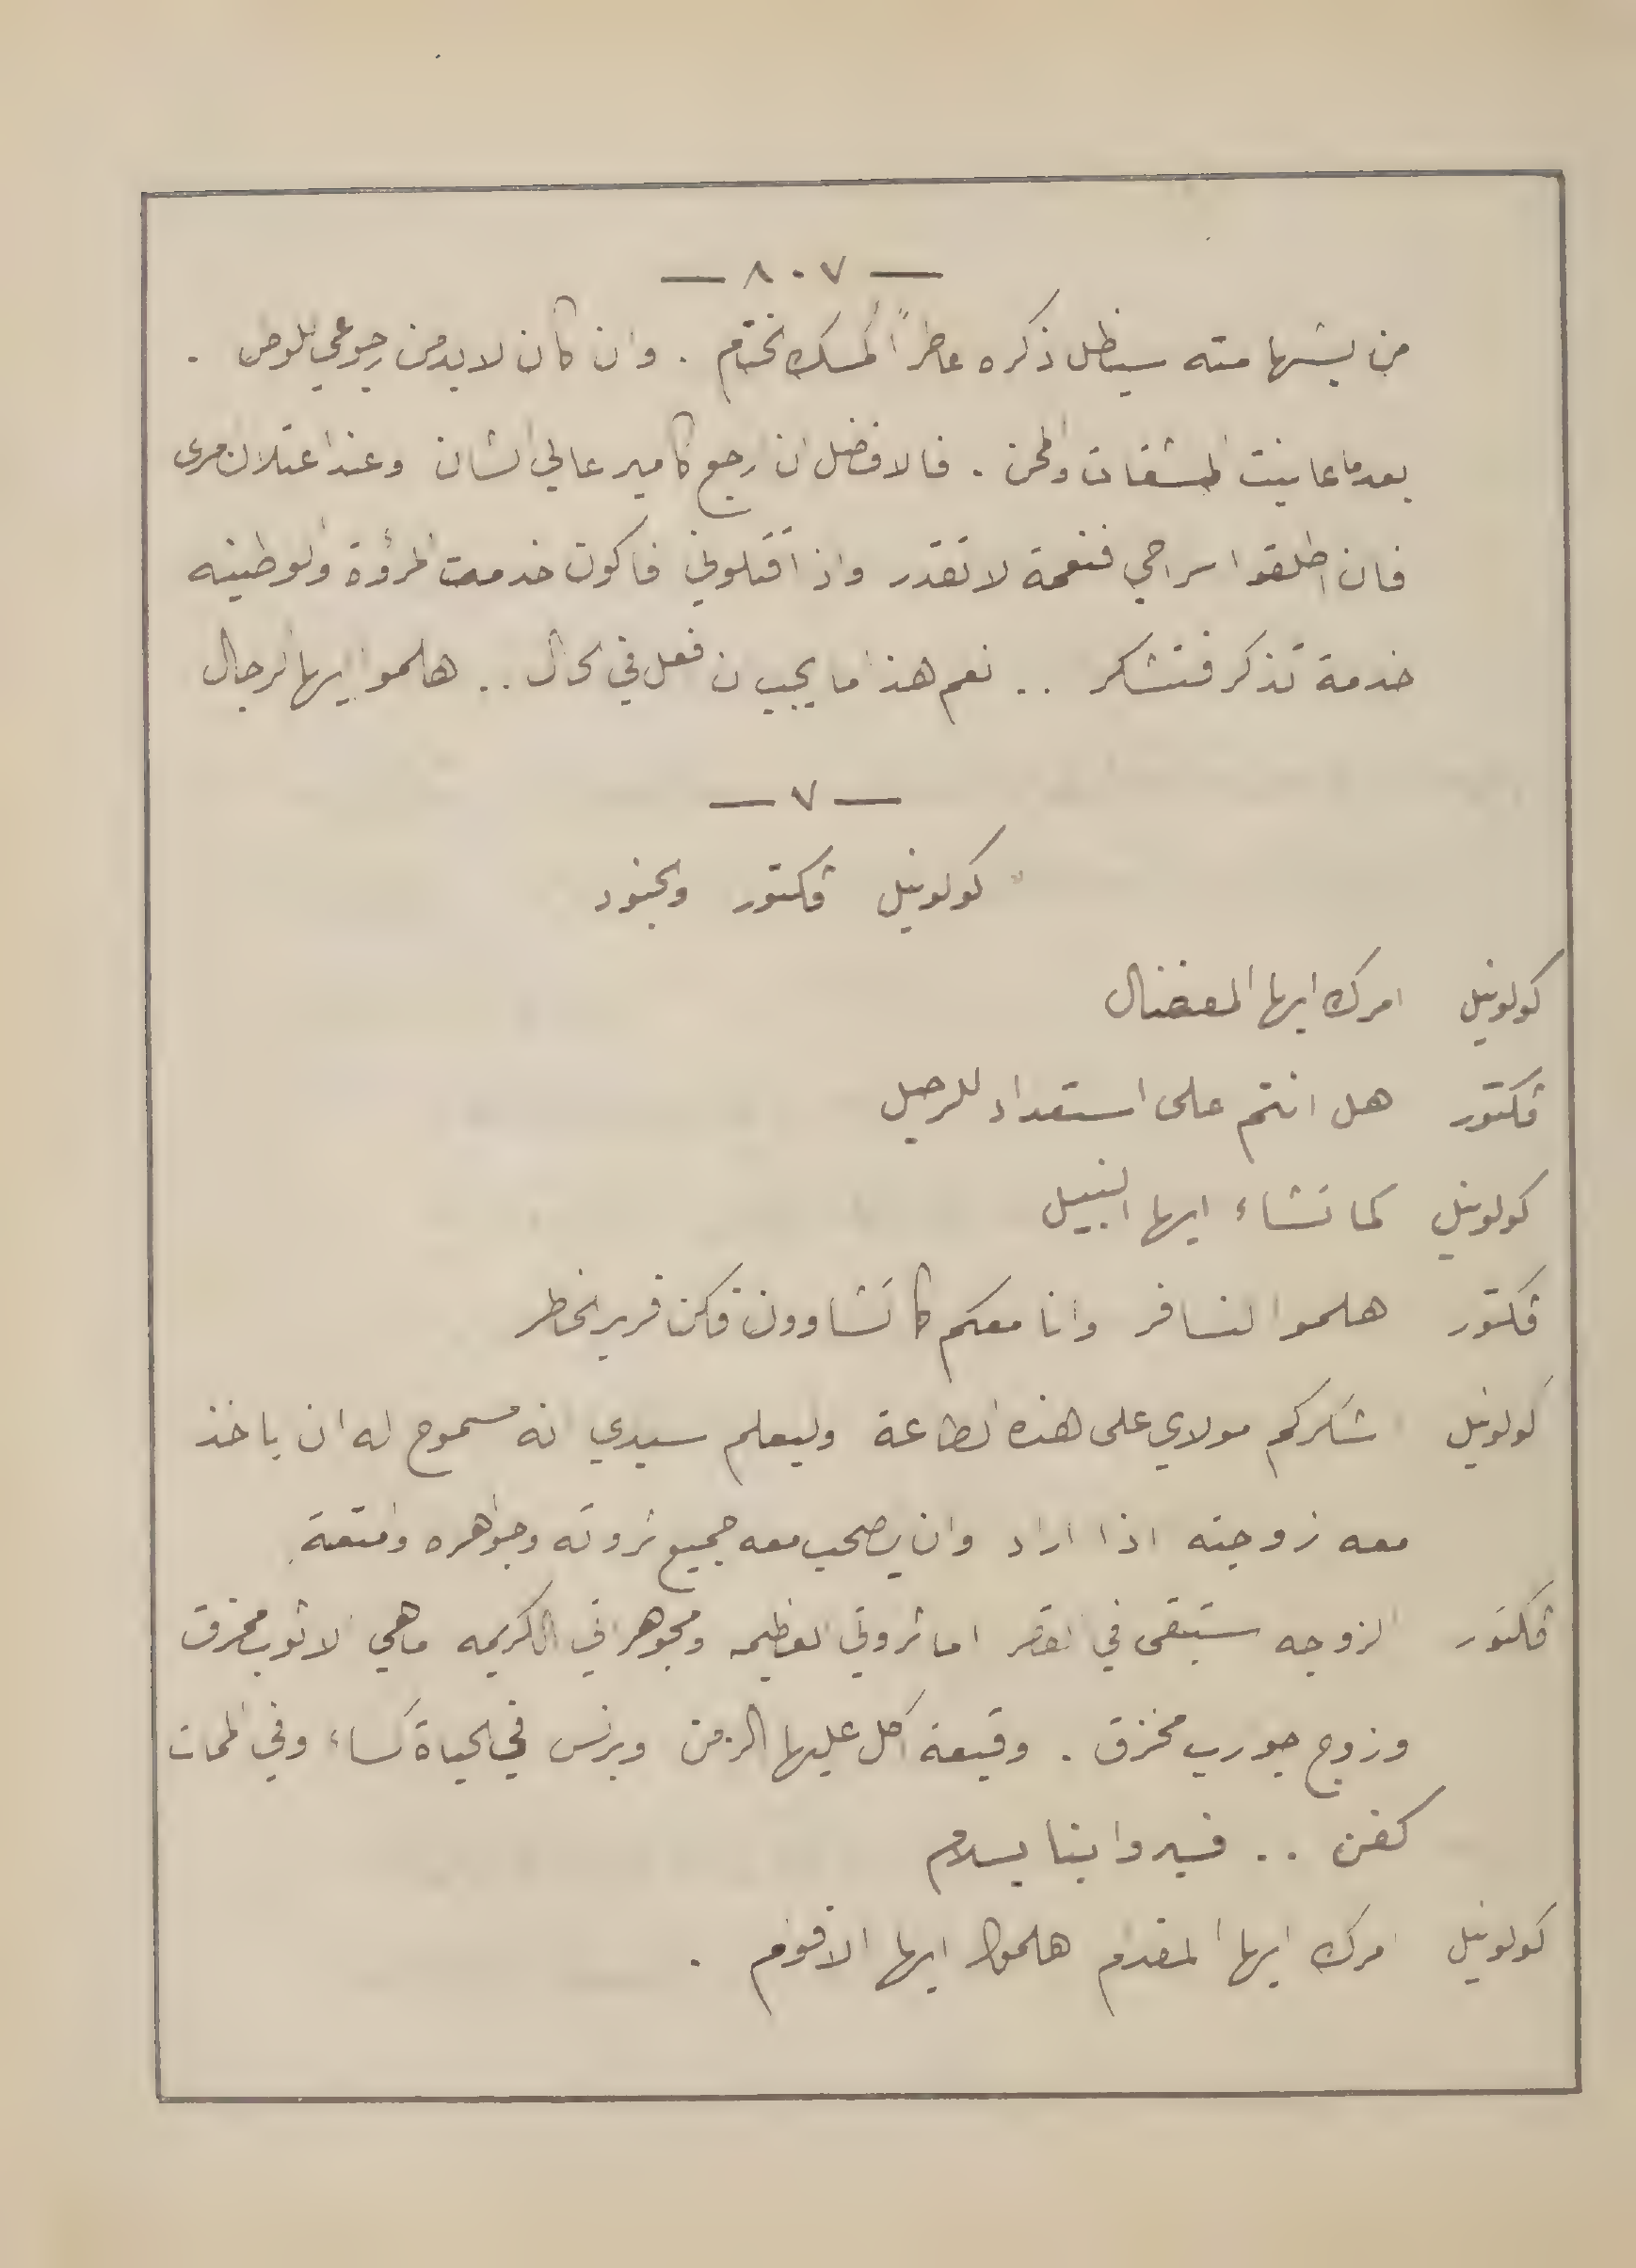 — ٨٠٧ —
من بشهامته سيظل ذكره عاطراً كمسك الختام . وان كان لابد من رجوعي للومن .
بعدما عاينت المشقات والمحن . فالافضل ان ارجع كامير عالي الشان وعند اعتلان امرى
فان اطلقوا سراحي فنعمة لا تقدر واذا قتلوني فاكون خدمت المرؤة والوطنيه
خدمة تذكر فتشكر .. نعم هذا ما يجب ان افعل في الحال .. هلموا ايها الرجال
— ٧ —
كولونيل ڤكتور والجنود
كولونيل امرك ايها المفضال
ڤكتور هل انتم على استعداد للرحيل
كولونيل كما تشاء ايها النبيل
ڤكتور هلموا لنسافر وانا معكم كما تشاوون فكن قرير الخاطر
كولونيل اشكركم مولاي على هذه الطاعة وليعلم سيدي انه مسموح له ان ياخذ
معه زوجته اذا اراد وان يصحب معه جميع ثروته وجواهره وامتعة
ڤكتور الزوجه ستبقى في القصر اما ثروتي العظيمه ومجوهراتي الكريمه ماهي الا ثوب مخزق
وزوج جورب مخزق . وقبعة اكل عليها الزمن وبرنس في الحياة كساء وفي الممات
كفن .. فسيروا بنا بسلام
كولونيل امرك ايها المقدام هلموا ايها الاقوام .